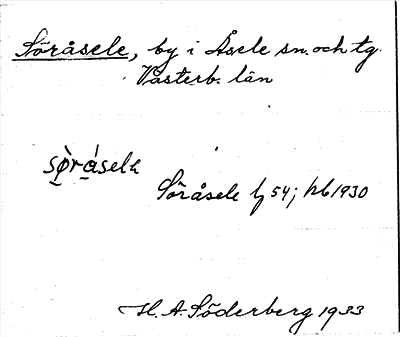 Söråsele, by i Åsele sn. och tg.
Västerb. län
sø̀ráselɛ
Söråsele bj 54; hb 1930
H. A. Söderberg 1933